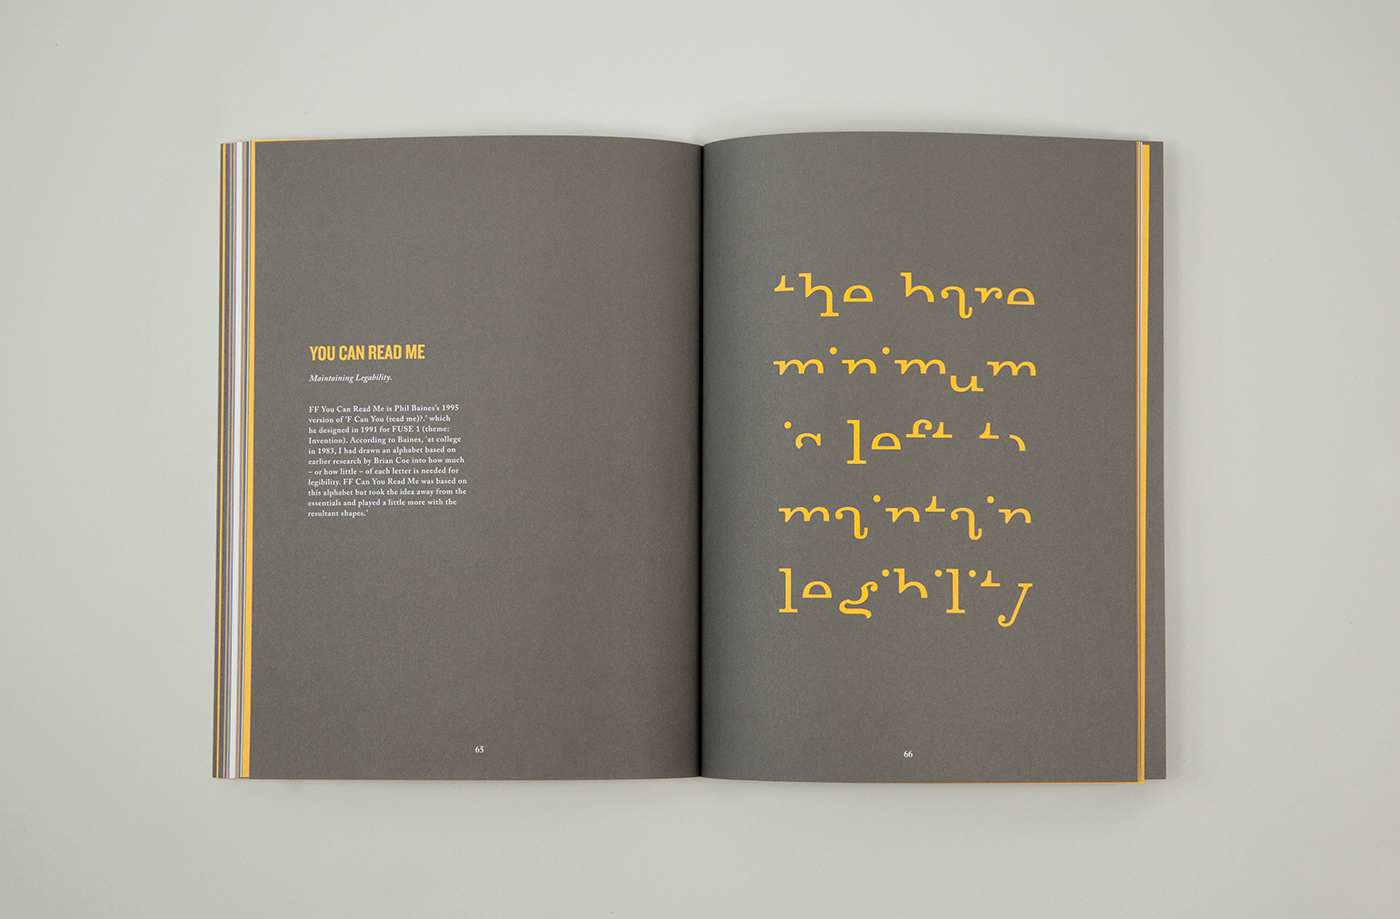 YOU CAN READ ME
Maintaining Legability.
FF You Can Read Me is Phil Baines's 1995
version of 'F Can You (read me)?.' which
he designed in 1991 for FUSE 1 (theme:
Invention). According to Baines, 'at college
in 1983, I had drawn an alphabet based on
earlier research by Brian Coe into how much
– or how little – of each letter is needed for
legibility. FF Can You Read Me was based on
this alphabet but took the idea away from the
essentials and played a little more with the
resultant shapes.'
65
the bare
minimum
is left to
maintain
legibility
66